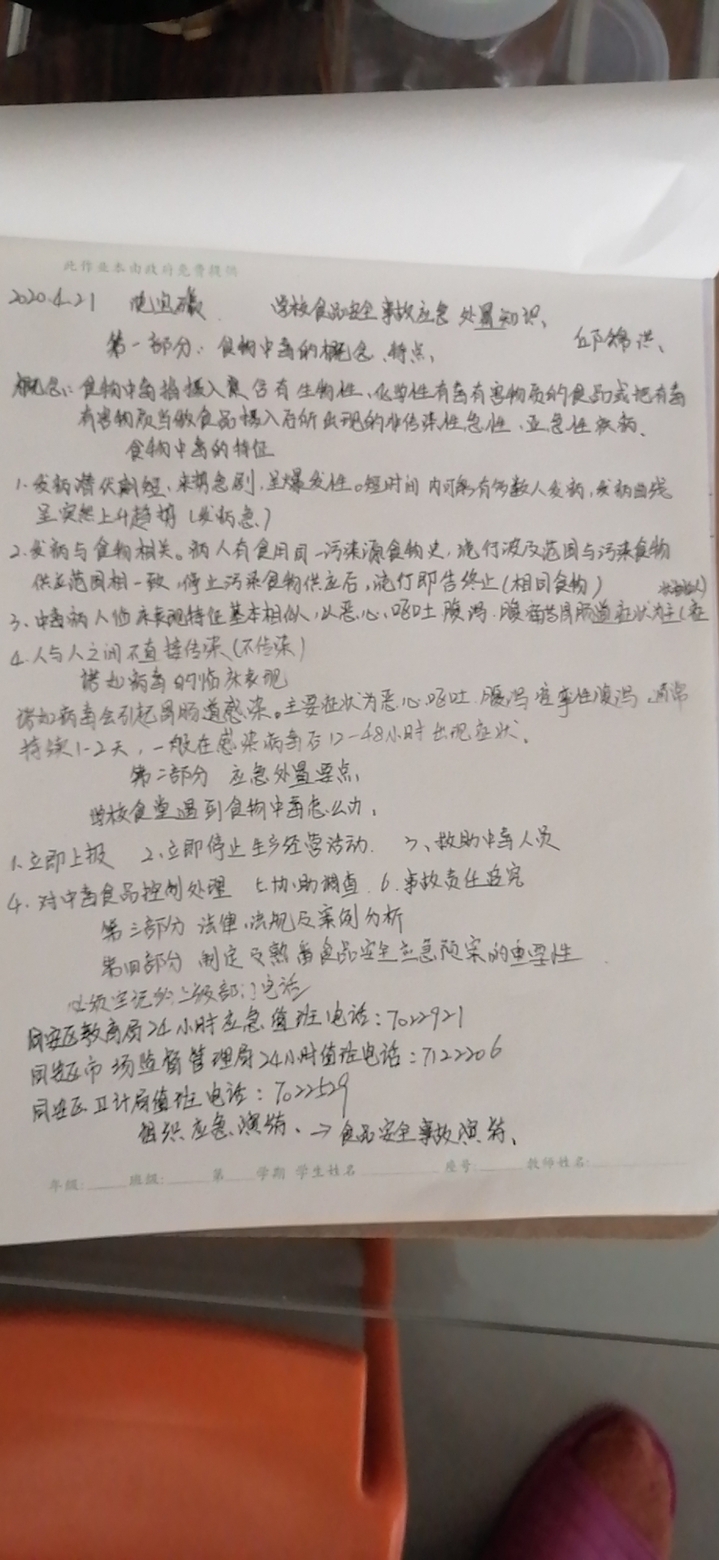 此作业本由政府免费提供
2020.4.21 学校食品安全事故应急处置知识、
邱锦洪、
第一部分：食物中毒的概念、特点、
概念：食物中毒指摄入患含有生物性、化学性有毒有害物质的食品或把有毒
有害物质当做食品摄入后所出现的非传染性急性、亚急性疾病、
食物中毒的特征
1、发病潜伏期短、来势急剧，呈爆发性。短时间内可能有多数人发病，发病曲线
呈突然上升趋势（发病急）
2、发病与食物相关。病人有食用同一污染源食物史，流行波及范围与污染食物
供应范围相一致，停止污染食物供应后，流行即告终止（相同食物）
3、中毒病人临床表现特征基本相似，以恶心、呕吐、腹泻、腹痛等胃肠道症状为主（症
状相似）
4、人与人之间不直接传染（不传染）
诺如病毒的临床表现
诺如病毒会引起胃肠道感染。主要症状为恶心、呕吐、腹泻、痉挛性腹泻，通常
持续1-2天，一般在感染病毒后12-48小时出现症状。
第二部分 应急处置要点、
学校食堂遇到食物中毒怎么办、
1、立即上报 2、立即停止生产经营活动. 3、救助中毒人员
4. 对中毒食品控制处理 5.协助调查. 6.事故责任追究
第三部分 法律、法规及案例分析
第四部分 制定及熟悉食品安全应急预案的重要性
必须牢记的上级部门电话
同安区教育局24小时应急值班电话：7022921
同安区市场监督管理局24小时值班电话：7122206
同安区卫计局值班电话：7022529
组织应急演练、→食品安全事故演练、
年级: 班级: 第 学期 学生姓名 座号: 教师姓名: